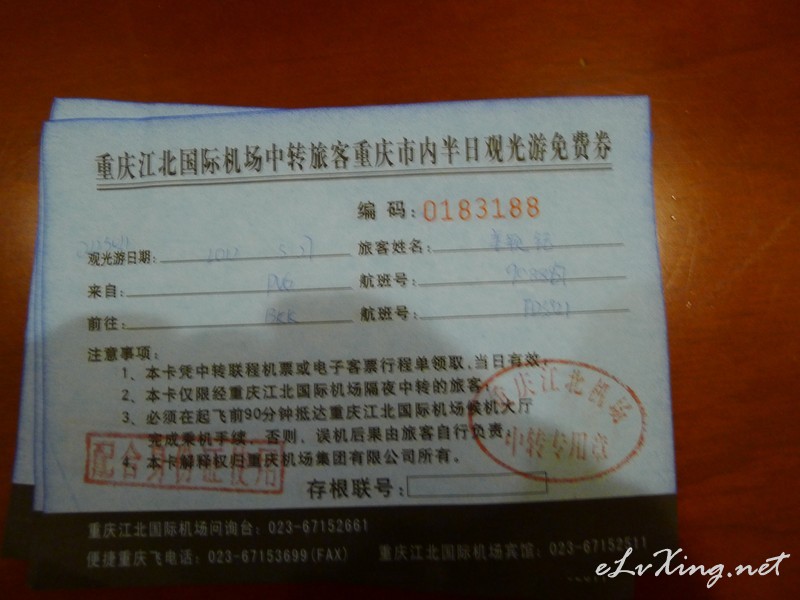 重庆江北国际机场中转旅客重庆市内半日观光游免费券
编 码：0183188
观光游日期： 旅客姓名：
来自： PVG 航班号：
前往： BKK 航班号：
注意事项：
1、本卡凭中转联程机票或电子客票行程单领取，当日有效；
2、本卡仅限经重庆江北国际机场隔夜中转的旅客；
3、必须在起飞前90分钟抵达重庆江北国际机场候机大厅
完成乘机手续，否则，误机后果由旅客自行负责
4、本卡解释权归重庆机场集团有限公司所有。
配合身份证使用
重庆江北机场
中转专用章
存根联号：
重庆江北国际机场问询台：023-67152661
便捷重庆飞电话：023-67153699(FAX) 重庆江北国际机场宾馆：023-67152511
eLvXing.net